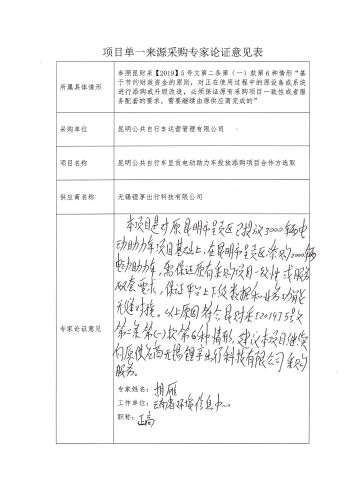 项目单一来源采购专家论证意见表
所属具体情形
参照昆财采【2019】5号文第二条第（一）款第6种情形“基
于节约财政资金的原则，对正在使用过程中的原设备或系统
进行添购或升级改造，必须保证原有采购项目一致性或者服
务配套的要求，需要继续由原供应商完成的”
采购单位
昆明公共自行车运营管理有限公司
项目名称
昆明公共自行车呈贡电动助力车投放添购项目合作方选取
供应商名称
无锡锂享出行科技有限公司
专家论证意见
本项目是对原昆明市呈贡区已投放3000辆电
动助力车项目基础上，在昆明市呈贡区添购2000辆
电动助力车，需保证原有采购项目一致性或服务
配套要求，保证平台上下级数据和业务功能
无缝对接。以上原因符合昆财采［2019］5号文
第二条第(一)款第6种情形，建议本项目继续
向原供应商无锡锂享出行科技有限公司采购
服务。
专家姓名：胡雁
工作单位：云南省环境信息中心
职称：正高